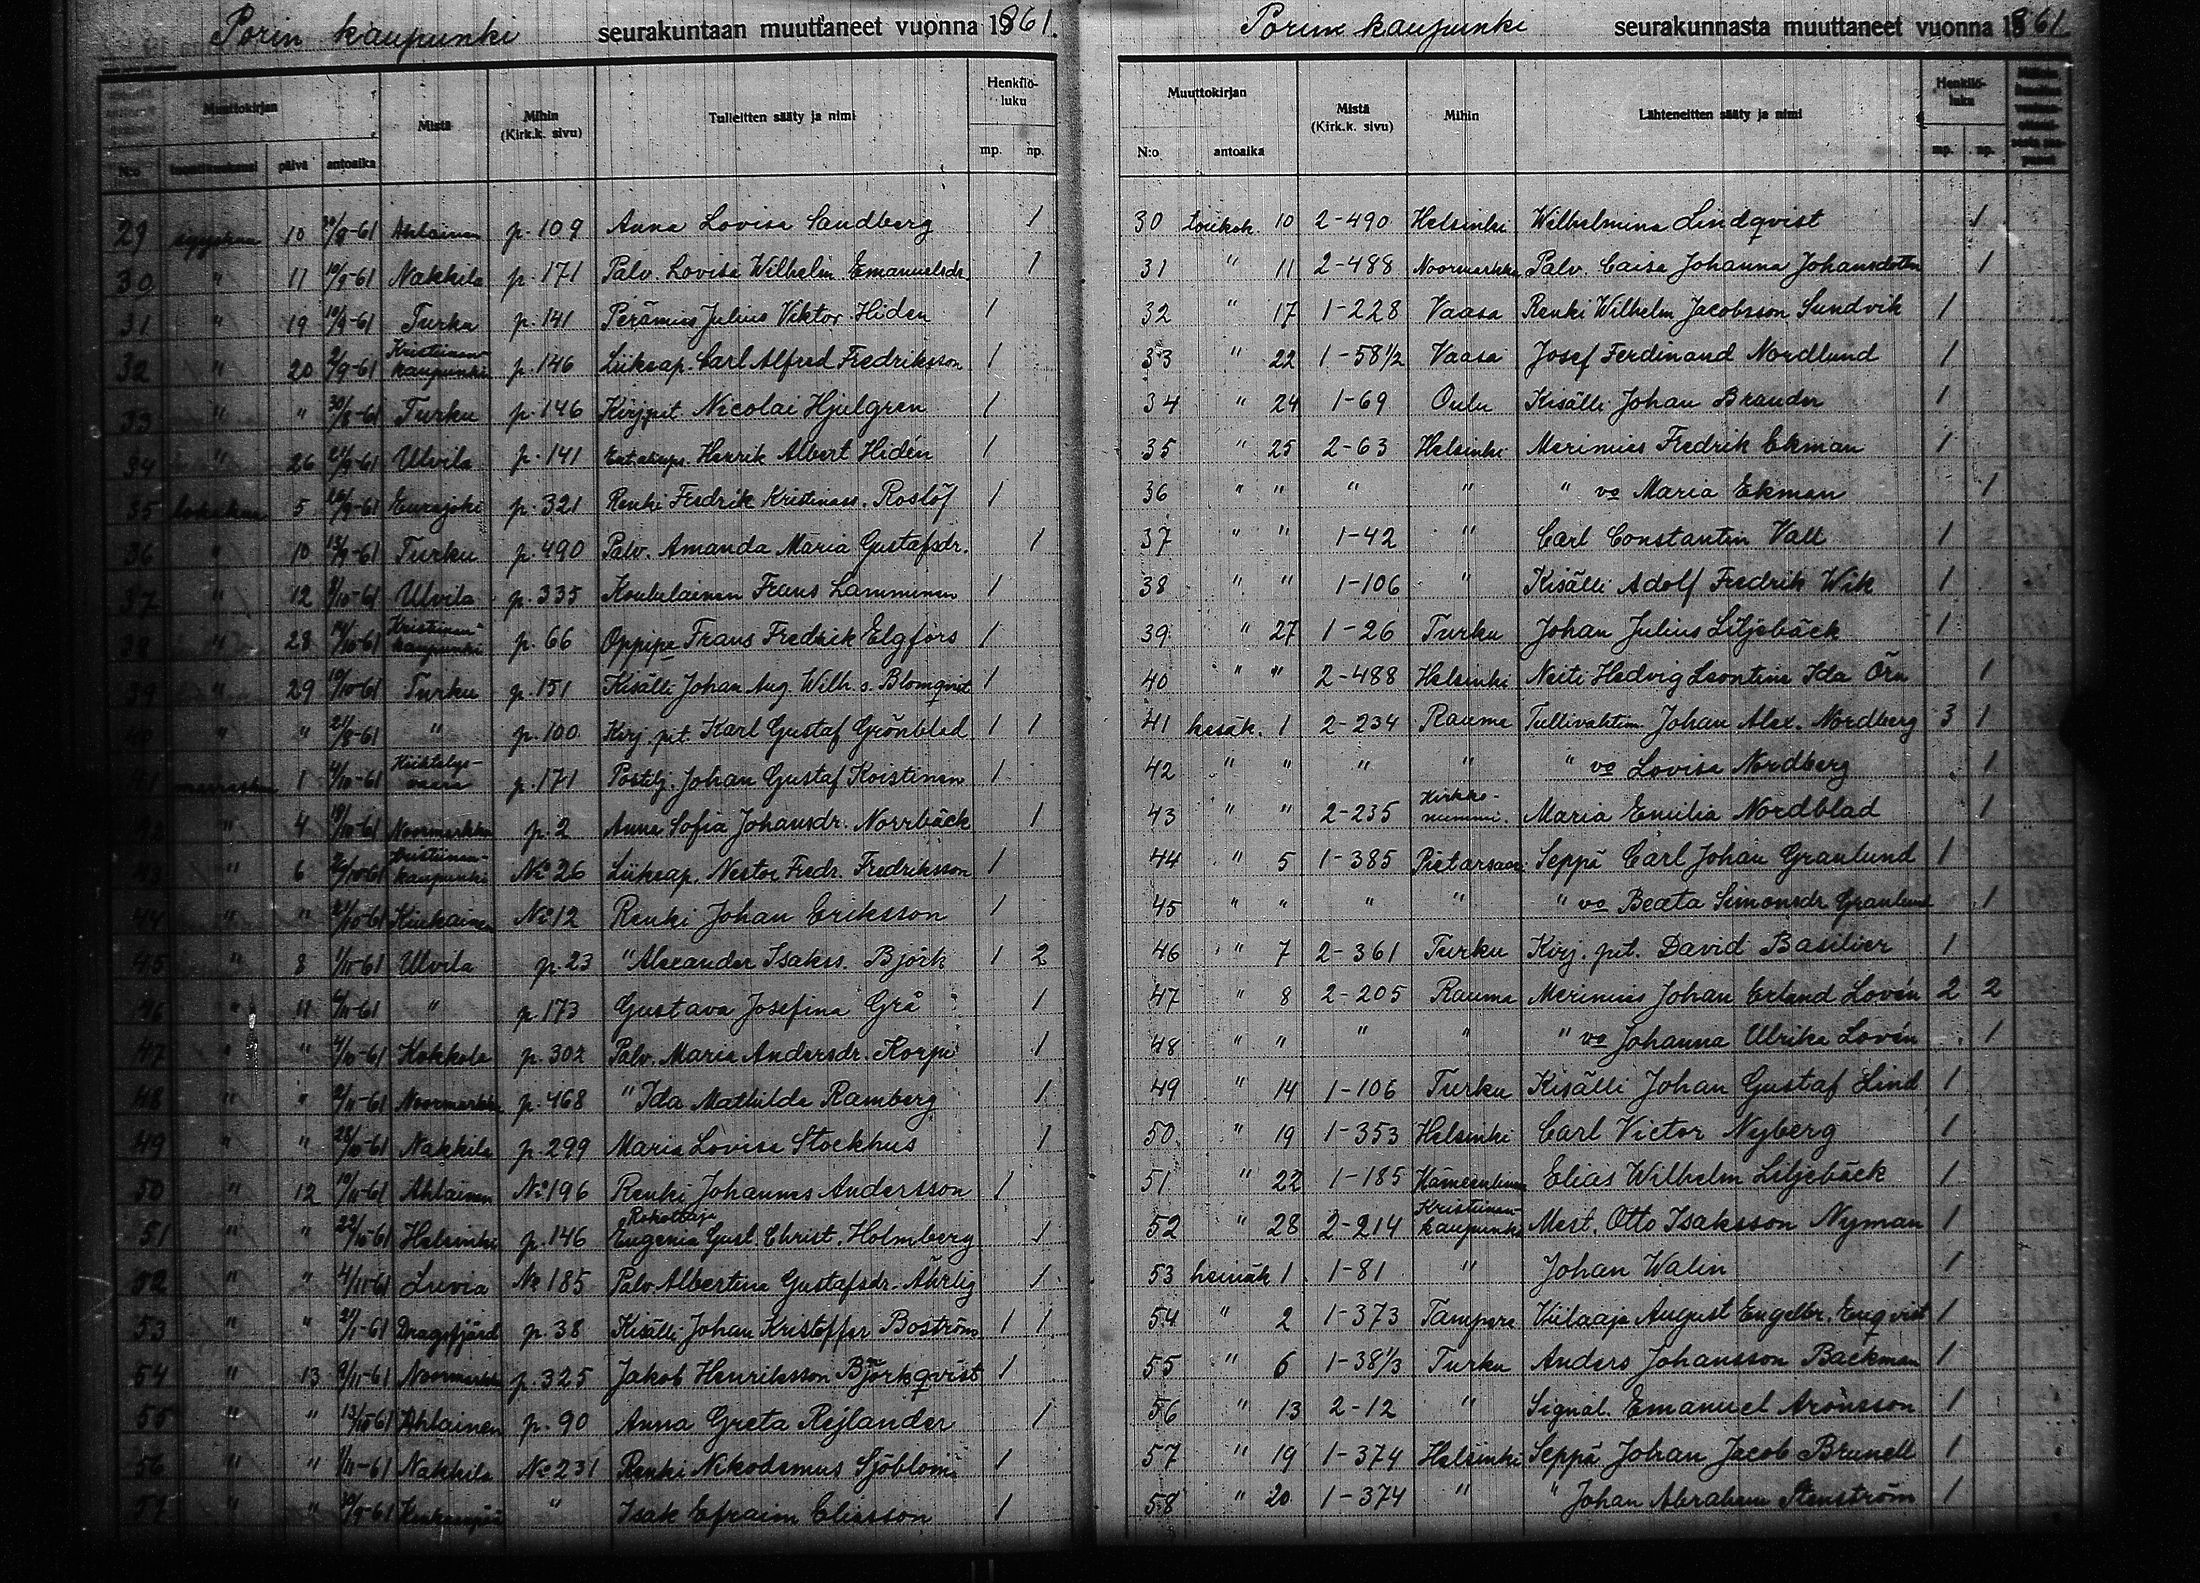 Porin kaupunki seurakuntaan muuttaneet vuonna 1861.
Muuttokirjan Mistä Mihin (Kirk.k. sivu) Tulleitten sääty ja nimi Henkilö-luku
N:o päivä antoaika mp. np.
29 syyskuu 10 /9-61 Ahlainen p. 109 Anna Lovisa Sandberg 1
30 " 11 10/9-61 Nakkila p. 171 Palv. Lovisa Wilhelm. Emanuelsdr. 1
31 " 19 10/9-61 Turku p. 141 Perämies Julius Viktor Hiden 1
32 " 20 2/9-61 Kristiinan-kaupunki p. 146 Liikeap. Carl Alfred Fredriksson 1
33 " " 30/8-61 Turku p. 146 Kirj.pit Nicolai Hjulgren 1
34 " 26 21/9-61 Ulvila p. 141 Henrik Albert Hidén 1
35 lokakuu 5 /9-61 Eurajoki p. 321 Renki Fredrik Kristinass. Roslöf 1
36 " 10 13/9-61 Turku p. 490 Palv. Amanda Maria Gustafsdr. 1
37 " 12 9/10-61 Ulvila p. 335 Koululainen Frans Lamminen 1
38 " 28 14/10-61 Kristiinan-kaupunki p. 66 Oppipa Frans Fredrik Elgfors 1
39 " 29 19/10-61 Turku p. 151 Kisälli Johan Aug. Wilh. s. Blomqvist 1
40 " " 21/8-61 " p. 100 Kirj. pit. Karl Gustaf Grönblad 1 1
41 marraskuu 1 4/10-61 Kiihtelys-vaara p. 171 Postilj. Johan Gustaf Koistinen 1
42 " 4 19/10-61 Noormarkku p. 2 Anna Sofia Johansdr. Norrbäck 1
43 " 6 /10-61 Kristiinan-kaupunki No 26 Liikeap. Nestor Fredr. Fredriksson 1
44 " " 21/10-61 Kiukainen No 12 Renki Johan Eriksson 1
45 " 8 1/11-61 Ulvila p. 23 " Alexander Isakss. Björk 1 2
46 " 11 /11-61 " p. 173 Gustava Josefina Grå 1
47 " " 4/10-61 Kokkola p. 302 Palv. Maria Andersdr. Korpi 1
48 " " 9/11-61 Noormarkku p. 468 " Ida Mathilda Ramberg 1
49 " " 28/10-61 Nakkila p. 299 Maria Lovisa Stockhus 1
50 " 12 10/11-61 Ahlainen No 196 Renki Johannes Andersson 1
51 " " 22/10-61 Helsinki p. 146 Rokottaja Eugenia Gust. Christ. Holmberg 1
52 " " 4/11-61 Luvia No 185 Palv. Albertina Gustafsdr. Ährlig 1
53 " " -61 Dragsfjärd p. 38 Kisälli Johan Kristoffer Boström 1 1
54 " 13 9/11-61 Noormarkku p. 325 Jakob Henriksson Björkqvist 1
55 " " 13/10-61 Ahlainen p. 90 Anna Greta Rejlander 1
56 " " 1/11-61 Nakkila No 231 Renki Nikodemus Sjöblom 1
57 " " -61 " Isak Efraim Eliasson 1
Porin kaupunki seurakunnasta muuttaneet vuonna 1861
Muuttokirjan Mistä (Kirk.k. sivu) Mihin Lähteneitten sääty ja nimi Henkilö-luku
N:o antoaika mp. np.
30 toukok. 10 2-490 Helsinki Wilhelmina Lindqvist 1
31 " 11 2-488 Noormarkku Palv. Caisa Johanna Johansdotter 1
32 " 17 1-228 Vaasa Renki Wilhelm Jacobsson Sundvik 1
33 " 22 1-58 1/2 Vaasa Josef Ferdinand Nordlund 1
34 " 24 1-69 Oulu Kisälli Johan Brander 1
35 " 25 2-63 Helsinki Merimies Fredrik Ekman 1
36 " " " " " vo Maria Ekman 1
37 " " 1-42 " Carl Constantin Vall 1
38 " " 1-106 " Kisälli Adolf Fredrik Wik 1
39 " 27 1-26 Turku Johan Julius Liljebäck 1
40 " " 2-488 Helsinki Neiti Hedvig Leontine Ida Örn 1
41 kesäk. 1 2-234 Rauma Tullivahtim. Johan Alex. Nordberg 3 1
42 " " " " " vo Lovisa Nordberg 1
43 " " 2-235 Kirkko-nummi. Maria Emilia Nordblad 1
44 " 5 1-385 Pietarsaari Seppä Carl Johan Granlund 1
45 " " " " " vo Beata Simonsdr Granlund 1
46 " 7 2-361 Turku Kirj. pit. David Basilier 1
47 " 8 2-205 Rauma Merimies Johan Erland Lovén 2 2
48 " " " " " vo Johanna Ulrika Lovén 1
49 " 14 1-106 Turku Kisälli Johan Gustaf Lind 1
50 " 19 1-353 Helsinki Carl Victor Nyberg 1
51 " 22 1-185 Hämeenlinna Elias Wilhelm Liljebäck 1
52 " 28 2-214 Kristiinan-kaupunki Mest. Otto Isaksson Nyman 1
53 heinäk 1 1-81 " Johan Walin 1
54 " 2 1-373 Tampere Viilaaja August Engelbr. Enqvist 1
55 " 6 1-38 1/3 Turku Anders Johansson Backman 1
56 " 13 2-12 " Signal. Emanuel Aronsson 1
57 " 19 1-374 Helsinki Seppä Johan Jacob Brunell 1
58 " 20 1-374 " " Johan Abraham Stenström 1